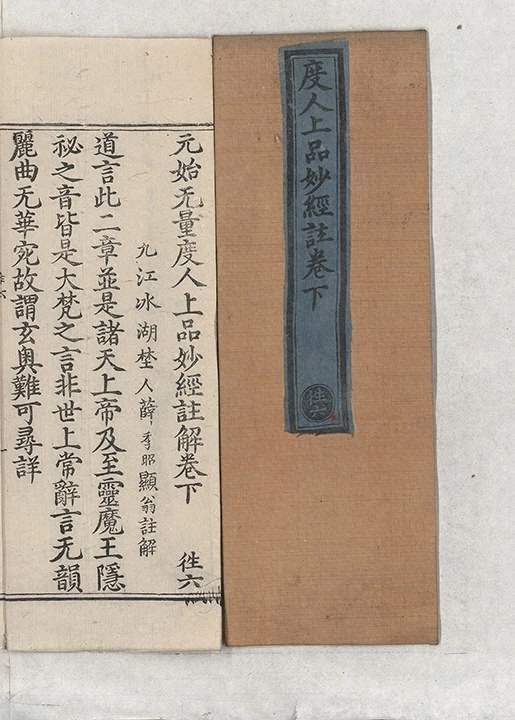 度人上品妙經註卷下
徃六
元始无量度人上品妙經註解卷下 徃六
九江冰湖埜人薛季昭顯翁註解
道言此二章並是諸天上帝及至靈魔王隱
祕之音皆是大梵之言非世上常辭言无韻
麗曲无華宛故謂玄奥難可尋詳